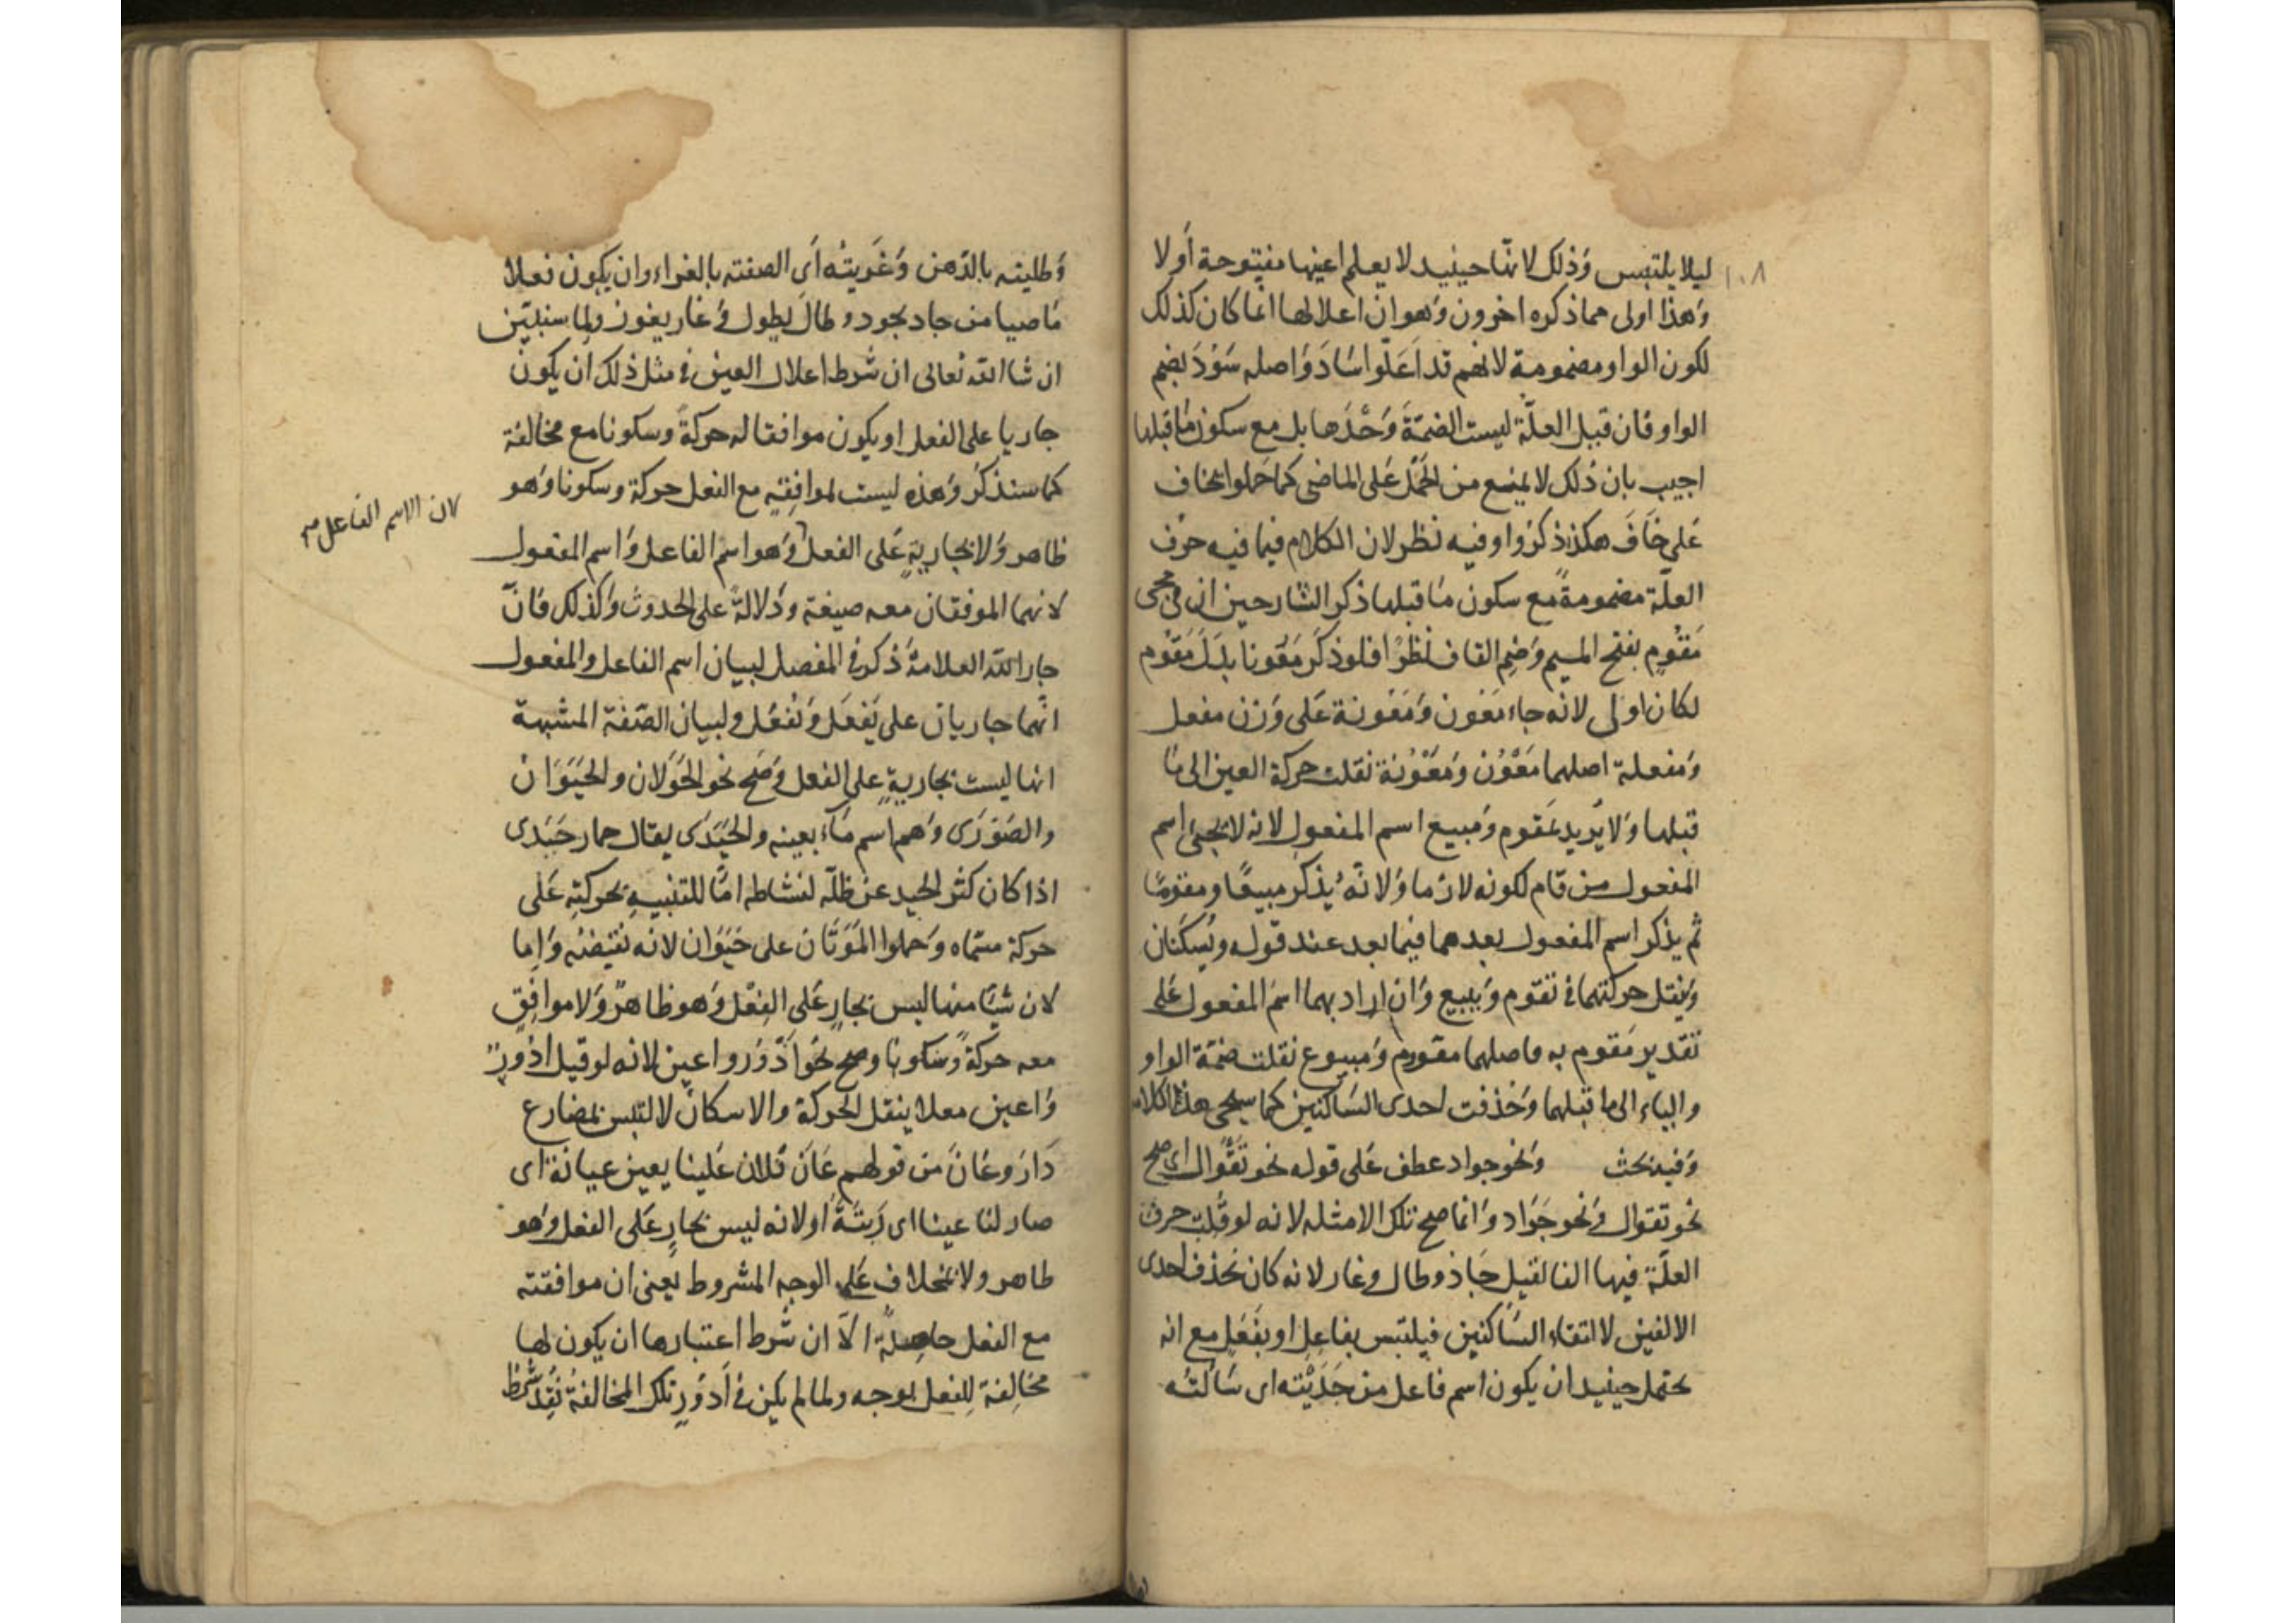 ١٠٨
ليلا يلتبس وَذلك لانّها حينيد لا يعلم اعينها مفتوحة أو لا
وَهذا اولى مما ذكره اخرون وَهو ان اعلالها انما كان كذلك
لكون الواو مضمومة لانهم قد اَعَلّوا سَادَ وَاصله سَوُدَ بضم
الواو فان قيل العلّة ليست الضمّةَ وَحْدَها بل مع سكون مَا قبلها
اجيب بان ذلك لا يمنع من الحَمْل عَلى الماضى كما حَملوا يخاف
عَلى خَافَ هكذا ذكرُوا وفيه نظر لان الكلام فيما فيه حرف
العلّة مضمومةً مع سكون مَا قبلها ذكر الشارحين ان فى مجى
مَقُومٍ بفتح الميم وَضم القاف نظرًا فلو ذكَر مَعُونا بدَل مَقُوم
لكان اولى لانه جاء مَعُون وَمَعُونة عَلى وَزن مفعل
وَمفعلة اصلهما مَعْوُن وَمَعْوُنة نقلت حركة العين الى مَا
قبلها وَلا يُريد بمَقوم وَمبيع اسم المفعول لانه لا يجئ اسم
المفعول من قام لكونه لازما وَلانّه يذكر مبيعًا ومقومًا
ثم يذكر اسم المفعول بعدهما فيما بعد عند قوله ويُسكنان
وَينقل حركتهما فى تقوم وَيبيع وَان اراد بهما اسمَ المفعول عَلى
تقدير مَقوم به فاصلهما مقووم وَمبيوع نقلت ضمّة الواو
والياء الى ما قبلهما وَحُذفت احدى السَاكنين كما سيجى هذا الكلام
وَفيه بحث وَنحو جواد عطف عَلى قوله نحو تَقْوال اى صح
نحو تقوال وَنحو جَوَاد وَانما صح تلك الامثله لانه لو قُلبت حرف
العلّة فيها الفا لقيل جَاد وطال وغار لانه كان تحذف احدى
الالفين لالتقاء السَاكنين فيلتبس بفاعل او بفَعَل مع انه
يحتمل حينيد ان يكون اسم فاعل من جَدَيْته اى سَالته
وَطليته بالدّهن وَغَرَيتُه اَى الصقته بالغراء وان يكون فعلا
مَاضيا من جاد يجود وطالَ يطول وَغار يغور ولما سنبيّن
ان شا الله تعالى ان شرط اعلال العين فى مثل ذلك ان يكون
جاريا على الفعل او يكون موافقا له حركةً وسكونا مع مخالفة
كما سنذكر وَهذه ليست لموافقتِه مع الفعل حركة وسكونا وَهو
ظاهر وَلا بجاريةٍ عَلى الفعل وَهو اسم الفاعل وَاسم المفعول
لان الاسم الفاعل
لانهما الموفقان معه صيغة وَدلالةً على الحدوث وَلذلك فانّ
جار الله العلامة ذكر فى المفصل لبيان اسم الفاعل والمفعول
انّهما جاريان على يَفعَل وَيُفعَل ولبيان الصّفة المشبهة
انها ليست بجاريةٍ على الفعل وَصَح نحو الحَوَلان والحيَوَان
والصَوَرَى وَهم اسم مَاء بعينه والحيَدَى يقال حمار حَيَدى
اذا كان كثر الحيد عن ظلّه لنشاطه امّا للتنبيهِ بحركتِه عَلى
حركة مسمّاه وَحملوا المَوَتَان على حَيَوَان لانه نقيضه وَاما
لان شيًا منها ليس بجارٍ عَلى الفِعْل وَهو ظاهرٌ وَلا موافِقٍ
معه حركةً وَسكونا وصح نحو اَدْوُر واعين لانه لو قيل ادُورٌ
وَاعين معلا بنقل الحركة والاسكان لالتبس بمضارع
دَارَ وعَانَ من قولهم عَانَ فلان عَلينا يعين عيانة اى
صار لنا عينا اى رَبيَّةً او لانه ليس بجارٍ عَلى الفعل وَهو
ظاهر ولا بمخلاف عَلى الوجه المشروط يعنى ان موافقته
مع الفعل حاصلةٌ الاّ ان شرط اعتبارها ان يكون لها
مخالِفة لِلفعل بوجه ولما لم يكن فى اَدوُرٍ تلك المخالفةُ فُقِدَ شرط